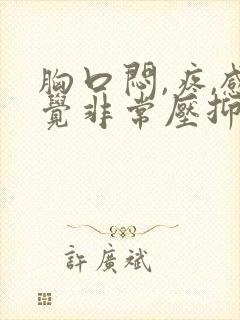 胸口悶,疼,感
覺非常壓抑
許廣斌